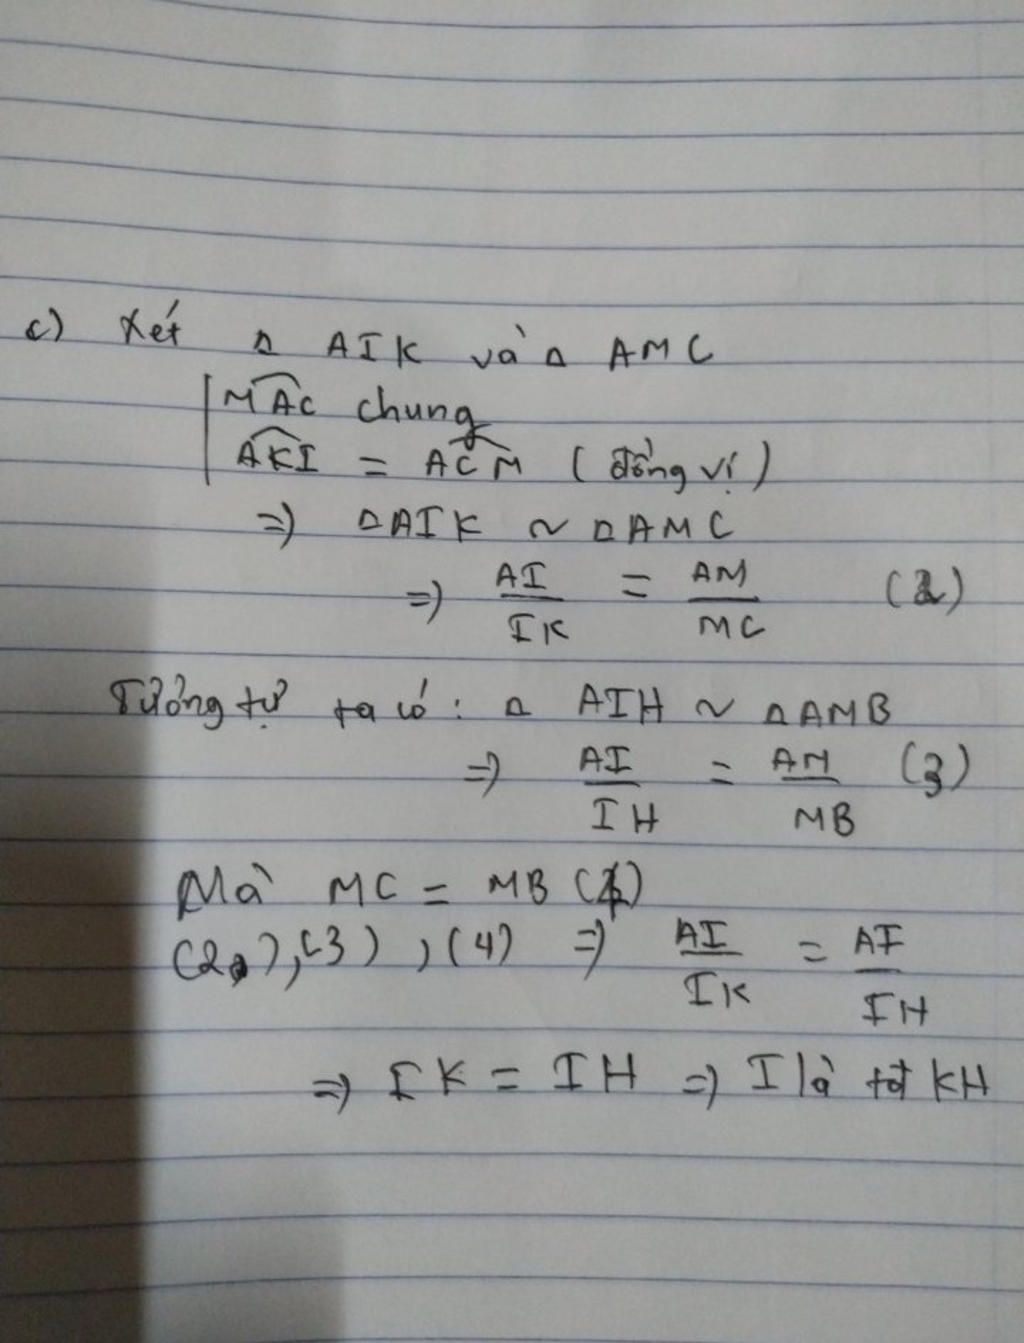 c) Xét Δ AIK và Δ AMC
\widehat{MAC} chung
\widehat{AKI} = \widehat{ACM} (đồng vị)
=> ΔAIK ~ ΔAMC
=> \frac{AI}{IK} = \frac{AM}{MC} (2)
Tương tự ta có: Δ AIH ~ ΔAMB
=> \frac{AI}{IH} = \frac{AM}{MB} (3)
Mà MC = MB (4)
(2),(3),(4) => \frac{AI}{IK} = \frac{AI}{IH}
=> IK = IH => I là tđ KH